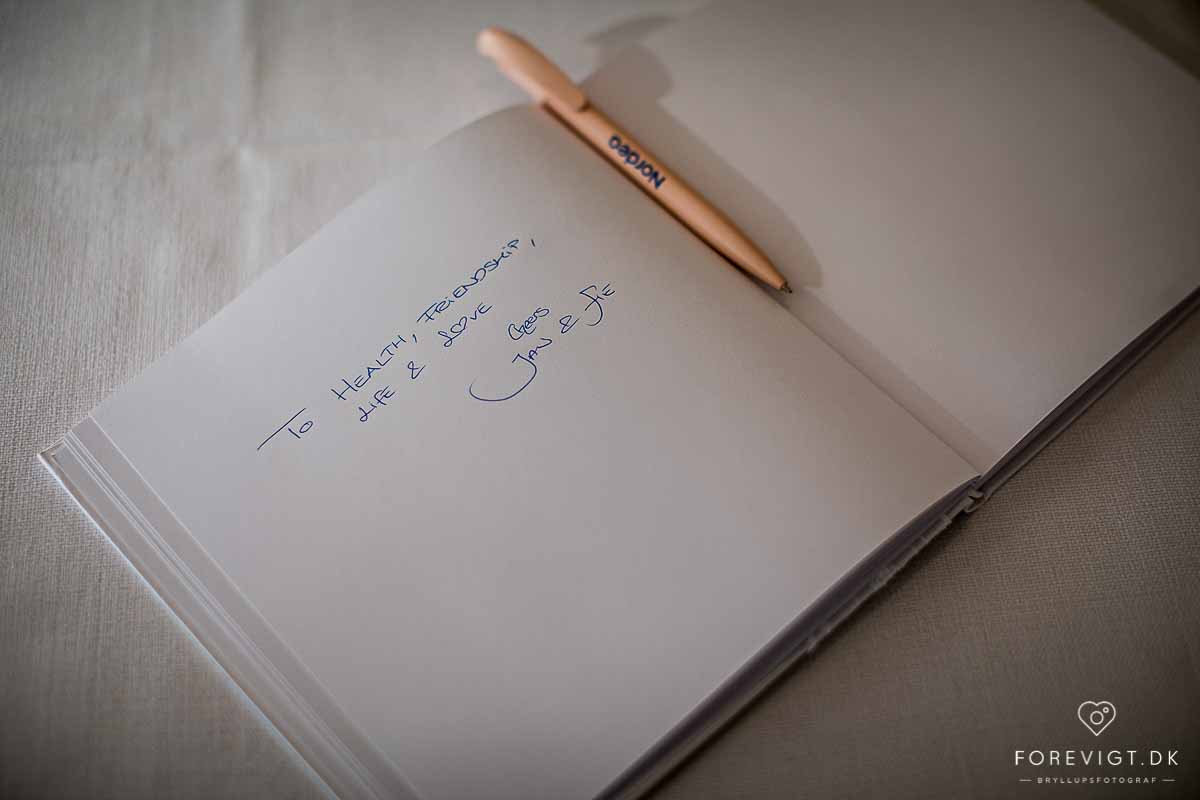 Nordea
To HEALTH, FRIENDSHIP,
LIFE & LOVE
CHEERS
JAN & FIE
FOREVIGT.DK
BRYLLUPSFOTOGRAF